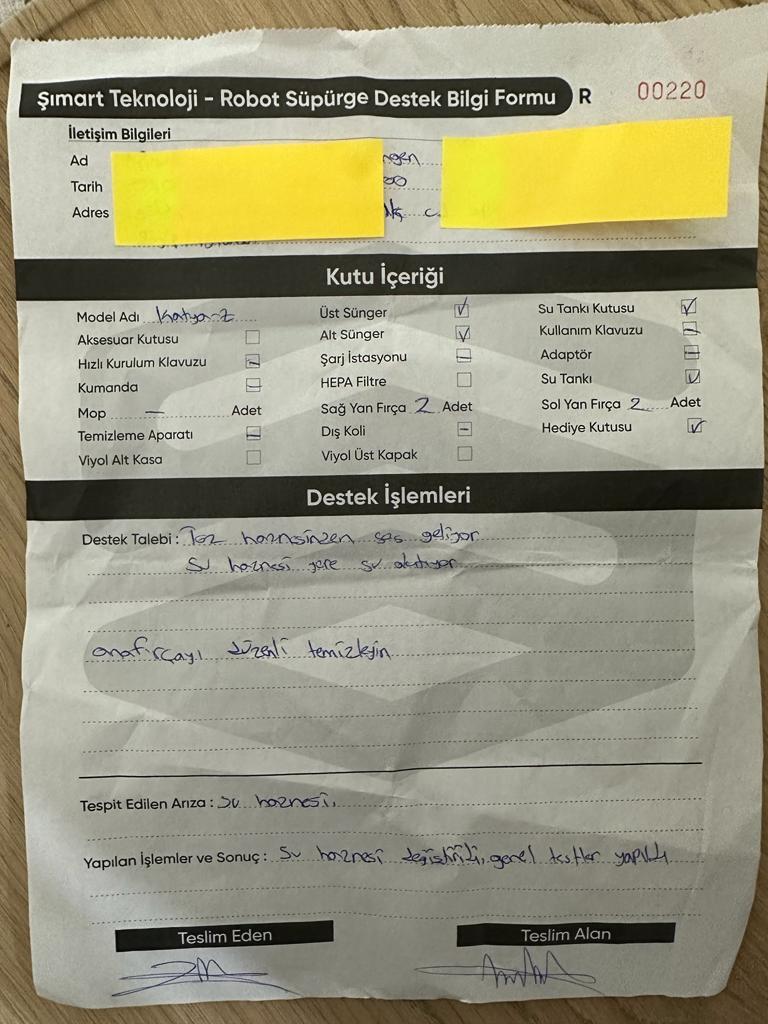 Şımart Teknoloji - Robot Süpürge Destek Bilgi Formu R 00220
İletişim Bilgileri
Ad
Tarih
Adres
Kutu İçeriği
Model Adı Katya-Z Üst Sünger Su Tankı Kutusu
Aksesuar Kutusu Alt Sünger Kullanım Klavuzu
Hızlı Kurulum Klavuzu Şarj İstasyonu Adaptör
Kumanda HEPA Filtre Su Tankı
Mop — Adet Sağ Yan Fırça 2 Adet Sol Yan Fırça 2 Adet
Temizleme Aparatı Dış Koli Hediye Kutusu
Viyol Alt Kasa Viyol Üst Kapak
Destek İşlemleri
Destek Talebi : Toz haznsinzen ses geliyor
Su haznesi yere su akıtıyor
anafırçayı düzenli temizleyin
Tespit Edilen Arıza : Su haznesi.
Yapılan İşlemler ve Sonuç : Su haznesi değiştirildi, genel testler yapıldı
Teslim Eden Teslim Alan